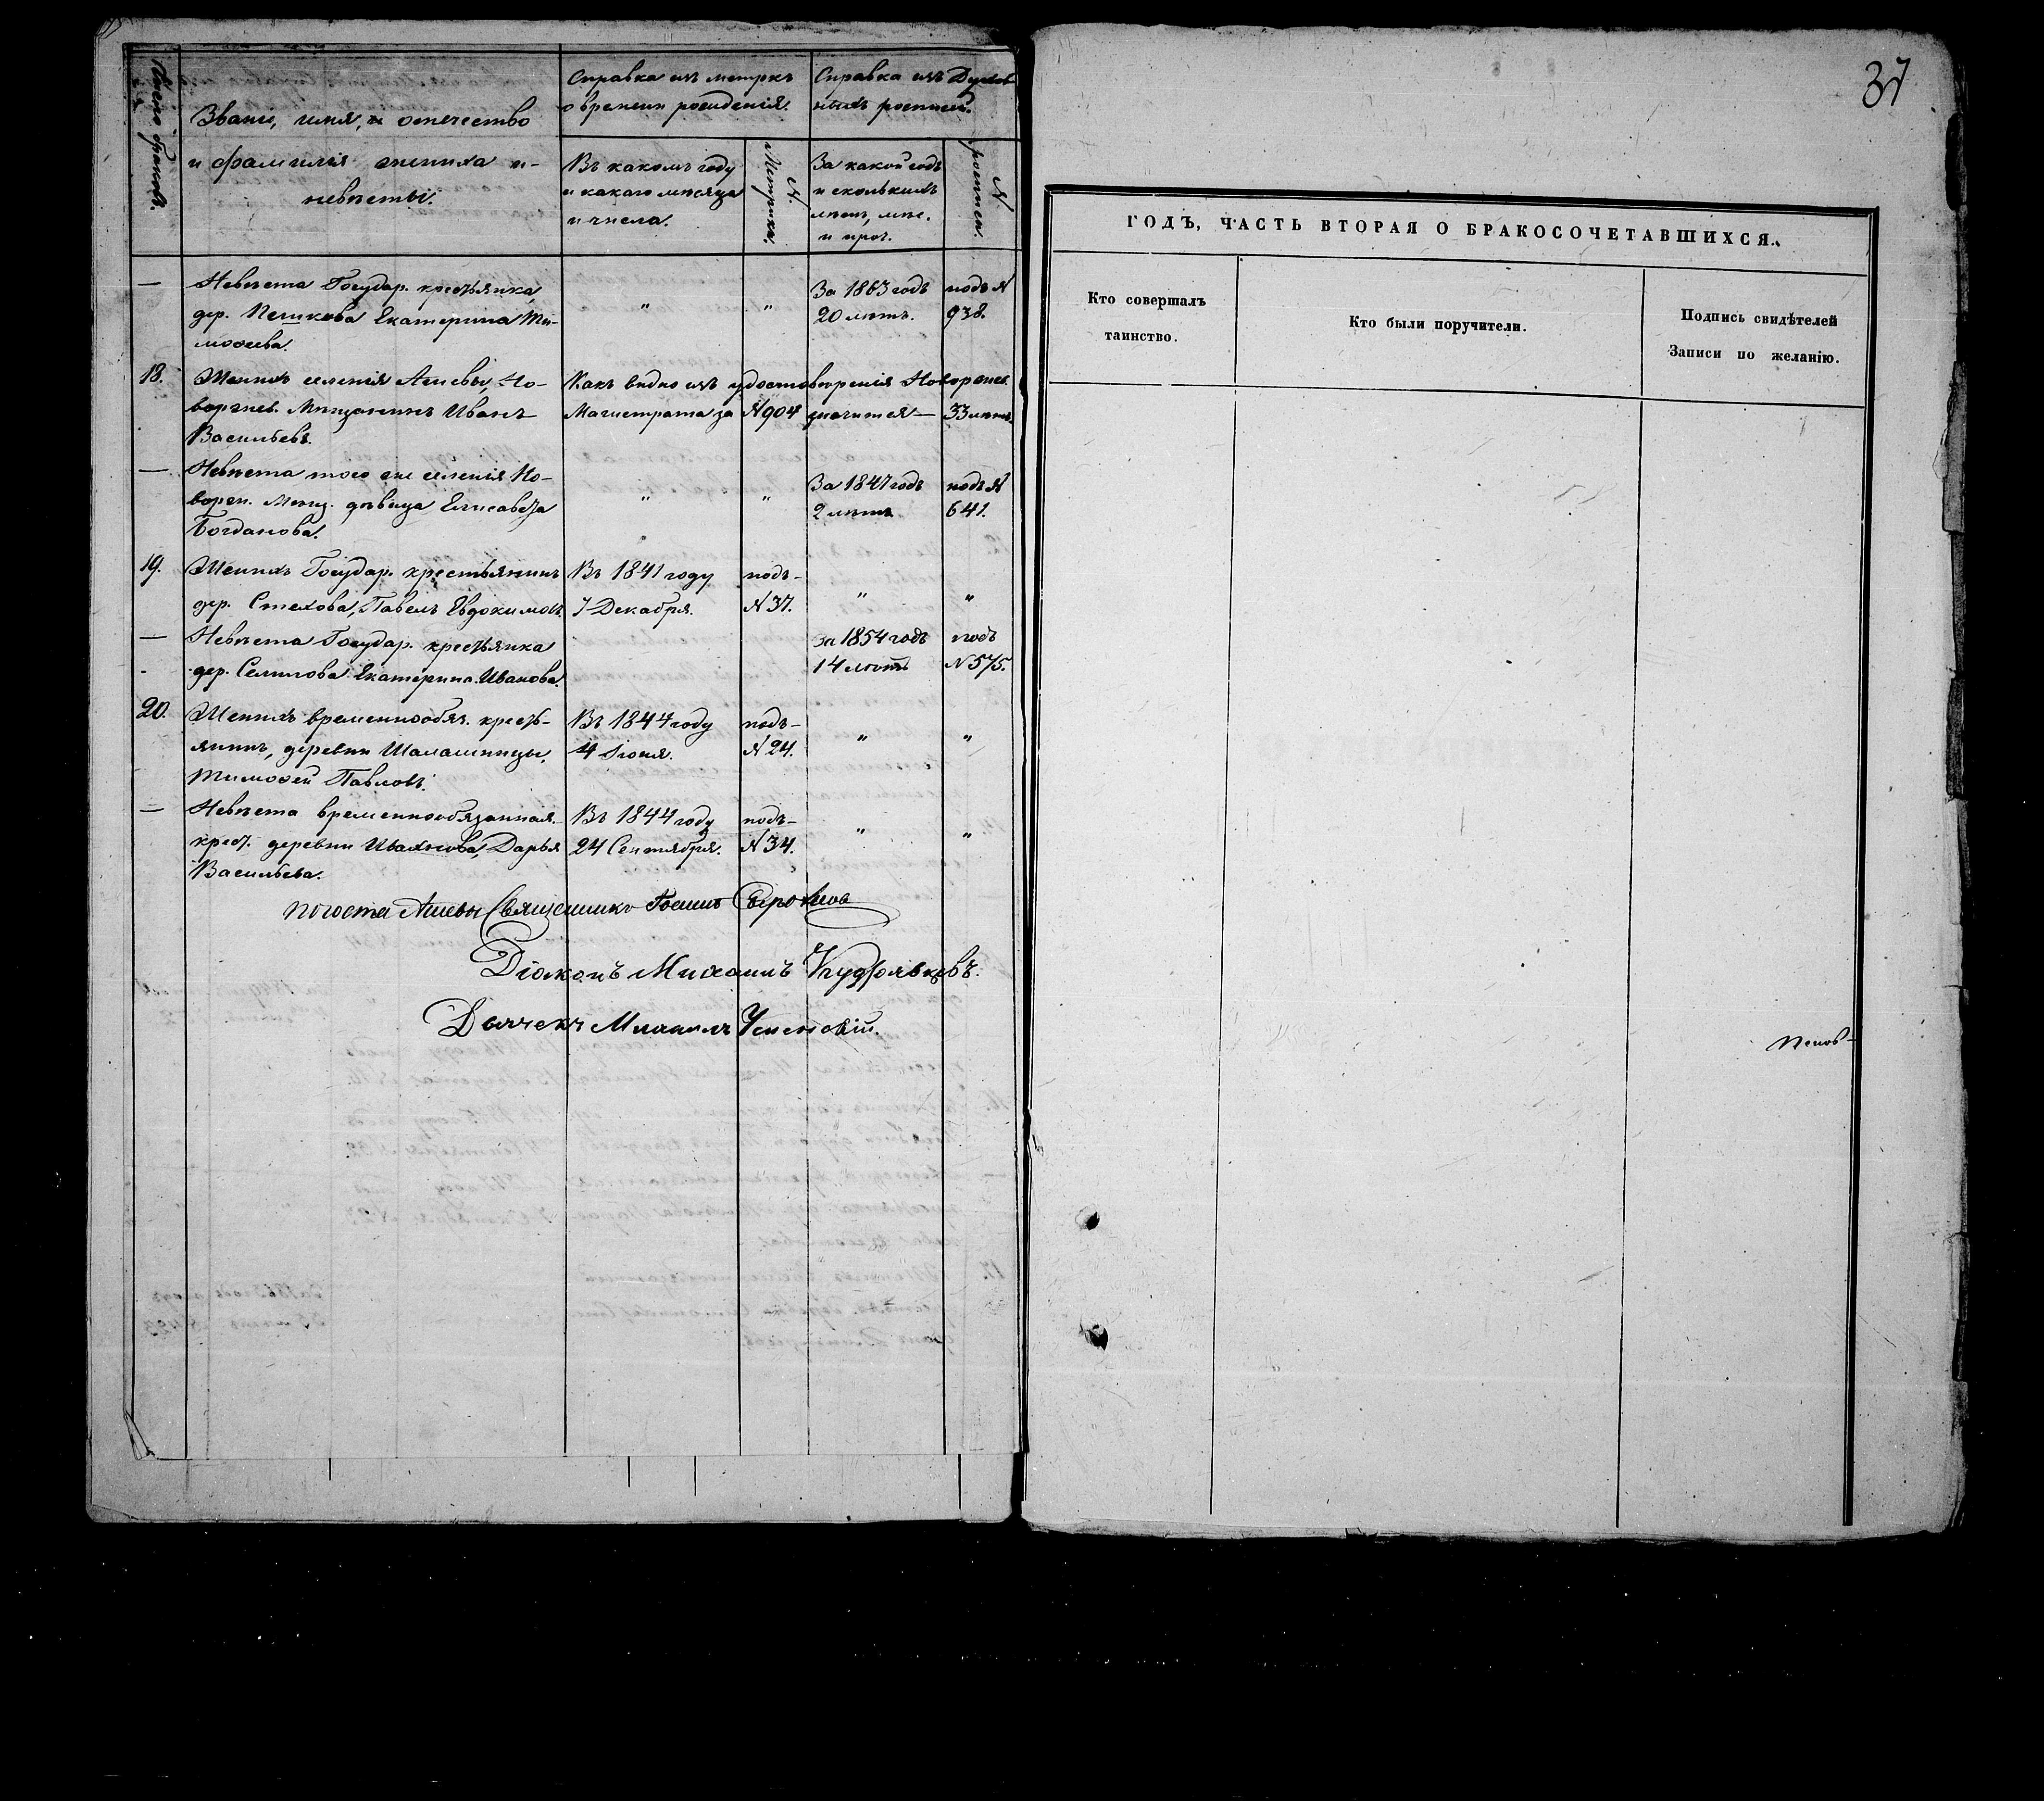 Число браковъ.
Званіе, имя, отечество
и фамилія жениха и
невѣсты.
Справка изъ метрикъ
о времени рожденія.
Въ какомъ году
и какаго мѣсяца
и числа.
№ Метрики.
Справка изъ Духов
ныхъ росписей.
За какой годъ
и сколькихъ
лѣтъ, мѣс.
и проч.
№ росписи.
— Невѣста Государ. крестьянка, " " За 1863 годъ подъ №
дер. Пешкова Екатерина Ти- 20 лѣтъ. 938.
моѳеева.
18. Женихъ селенія Ашевы, Но- Какъ видно изъ удостовѣренія Новоржев.
воржев. Мѣщанинъ Иванъ Магистрата за №904 значится — 33 лѣтъ.
Васильевъ.
— Невѣста того же селенія Но- " " За 1847 годъ подъ №
ворж. Мѣщ. дѣвица Елисавета 2 лѣтъ 641.
Богданова.
19. Женихъ Государ. крестьянинъ Въ 1841 году подъ - " "
дер. Стехова, Павелъ Евдокимовъ. 7 Декабря. №37.
— Невѣста Государ. крестьянка за 1854 годъ подъ
дер. Селилова Екатерина Иванова. 14 лѣтъ №575.
20. Женихъ временнообяз. кресть- Въ 1844 году подъ - " "
янинъ, деревни Шалашницы, 4 Іюня. №24.
Тимоѳей Павловъ.
— Невѣста временнообязанная Въ 1844 году подъ - " "
крест. деревни Ивахнова, Дарья 24 Сентября. №34.
Васильева.
погоста Ашевы Священникъ
Діаконъ Михаилъ Кудрявцевъ.
Дьячекъ Михаилъ Успенскій.
37
ГОДЪ, ЧАСТЬ ВТОРАЯ О БРАКОСОЧЕТАВШИХСЯ.
Кто совершалъ
таинство.
Кто были поручители.
Подпись свидѣтелей
Записи по желанію.